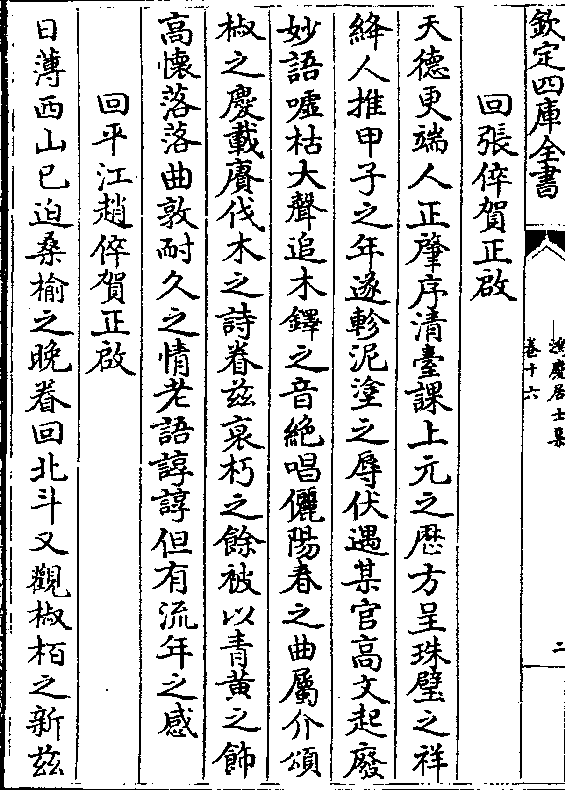 欽定四庫全書
鴻慶居士集
卷十六
二
回張倅賀正啟
天德更端人正肇序清臺課上元之厯方呈珠璧之祥
絳人推甲子之年遂軫泥塗之辱伏遇某官高文起廢
妙語噓枯大聲追木鐸之音絶唱儷陽春之曲屬介頌
椒之慶載賡伐木之詩眷兹衰朽之餘被以青黄之飾
高懷落落曲敦耐久之情老語諄諄但有流年之感
回平江趙倅賀正啟
日薄西山已迫桑榆之晚眷回北斗又觀椒栢之新兹